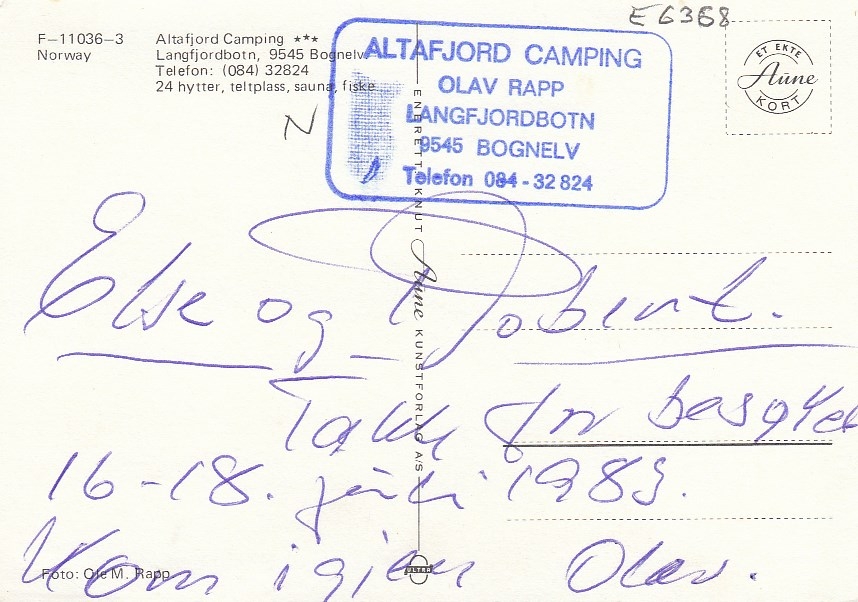 E6368
F-11036-3
Norway
Altafjord Camping ★★★
Langfjordbotn, 9545 Bognelv
Telefon: (084) 32824
24 hytter, teltplass, sauna, fiske
N
ALTAFJORD CAMPING
OLAV RAPP
LANGFJORDBOTN
9545 BOGNELV
Telefon 084-32824
ET EKTE
Aune
KORT
ENERETT: KNUT Aune KUNSTFORLAG A/S
Else og Robert.
Takk for besøket
16-18. juli 1983.
Kom igjen Olav.
Foto: Ole M. Rapp
ULTRA